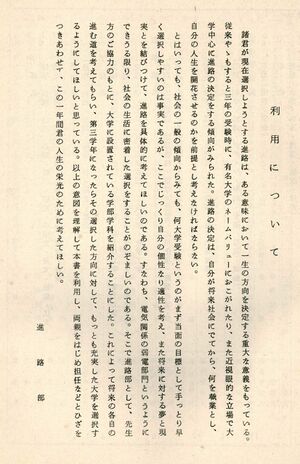 利用について
諸君が現在選択しようとする進路は、ある意味において一生の方向を決定する重大な意義をもっている。
従来やゝもすると三年の受験時に、有名大学のネームバリューにおこがれたり、また近視眼的な立場で大
学中心に進路の決定をする傾向がみられた。進路の決定は、自分が将来社会にでてから、何を職業とし、
自分の人生を開花させるのかを前提と考えなければならない。
とはいっても、社会の一般の傾向からみても、何大学受験というのがまず当面の目標として手っとり早
く選択しやすいのは事実であるが、ここでじっくり自分の個性なり適性を考え、また将来に対する夢と現
実とを結びつけて、進路を具体的に考えてほしいのである。すなわち、電気関係の弱電部門というように
できうる限り、社会の生活に密着した選択をすることがのぞましいのである。そこで進路部として、先生
方のご協力のもとに、大学に設置されている学部学科を紹介することにした。これによって将来の各自の
進む道を考えてもらい、第三学年になったらその選択した方向に対して、もっとも充実した大学を選択す
るようにしてほしいと思っている。以上の意図を理解して本書を利用し、両親をはじめ担任などとひざを
つきあわせて、この一年間君の人生の栄光のために考えてほしい。
進路部